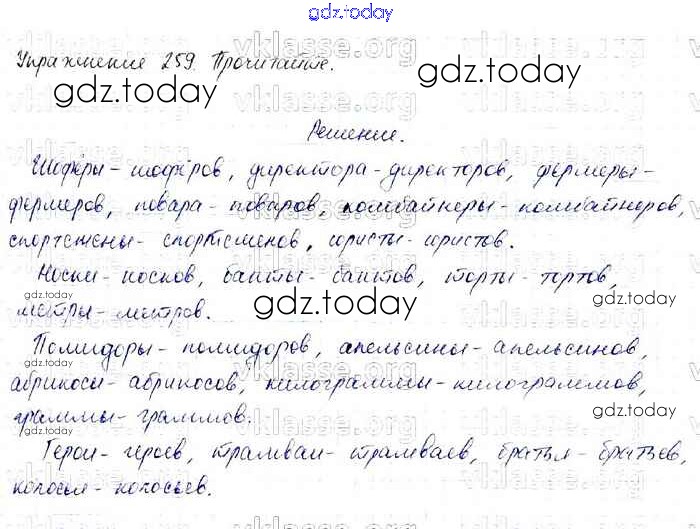 gdz.today
Упражнение 259. Прочитайте.
Решение.
Шофёры - шофёров, директора - директоров, фермеры -
фермеров, повара - поваров, комбайнеры - комбайнеров,
спортсмены - спортсменов, юристы - юристов.
Носки - носков, банты - бантов, торты - тортов,
метры - метров.
Помидоры - помидоров, апельсины - апельсинов,
абрикосы - абрикосов, килограммы - килограммов,
граммы - граммов.
Герои - героев, трамваи - трамваев, братья - братьев,
колосья - колосьев.